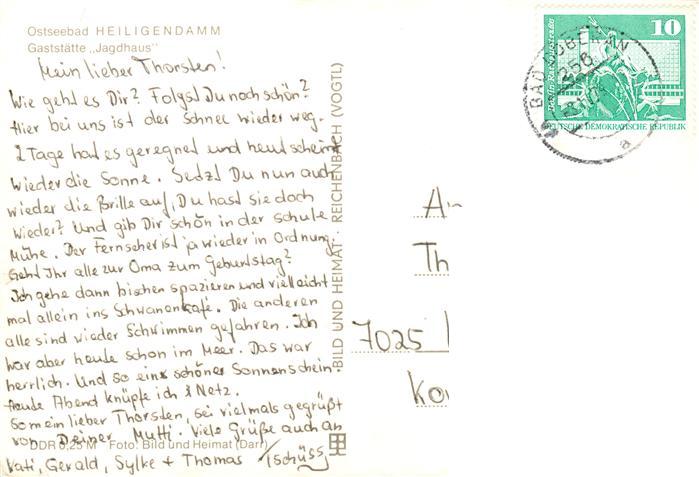 Ostseebad HEILIGENDAMM
Gaststätte „Jagdhaus"
Mein lieber Thorsten!
Wie geht es Dir? Folgst Du noch schön?
Hier bei uns ist der Schnee wieder weg.
2 Tage hat es geregnet und heut scheint
wieder die Sonne. Setzt Du nun auch
wieder die Brille auf, Du hast sie doch
wieder? Und gib Dir schön in der Schule
Mühe. Der Fernseher ist ja wieder in Ordnung.
Geht Ihr alle zur Oma zum Geburtstag?
Ich gehe dann bischen spazieren und vielleicht
mal allein ins Schwanenkafé. Die anderen
alle sind wieder Schwimmen gefahren. Ich
war aber heute schon im Meer. Das war
herrlich. Und so ein schöner Sonnenschein.
Heute Abend knüpfe ich 1 Netz.
So mein lieber Thorsten, sei vielmals gegrüßt
von Deiner Mutti. Viele Grüße auch an
Vati, Gerald, Sylke + Thomas Tschüss
DDR 0,25 M Foto: Bild und Heimat (Darr)
BILD UND HEIMAT REICHENBACH (VOGTL)
10
DEUTSCHE DEMOKRATISCHE REPUBLIK
BAD DOBERAN
256
a
An
Th
7025